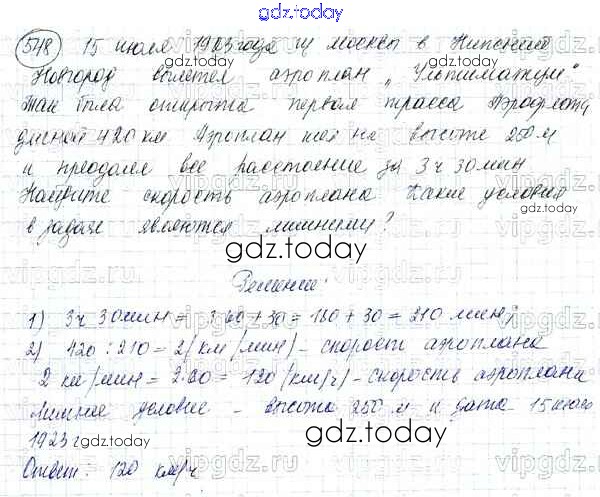 gdz.today
548 15 июля 1923 года из Москвы в Нижний
Новгород вылетел аэроплан „Ультиматум"
Так была открыта первая трасса Аэрофлота
длиной 420 км Аэроплан шел на высоте 250 м
и преодолел все расстояние за 3 ч 30 мин
Найдите скорость аэроплана Какие условия
в задаче являются лишними?
gdz.today
gdz.today
Решение:
1) 3ч 30мин = 3·60+30 = 180 + 30 = 210 мин;
2) 420 : 210 = 2 (км/мин) – скорость аэроплана
2 км/мин = 2·60 = 120 (км/ч) – скорость аэроплана
Лишнее условие – высота 250 м и дата 15 июля
1923 г
gdz.today
Ответ: 120 км/ч
gdz.today